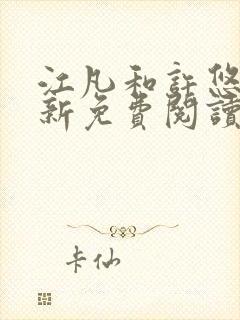 江凡和許悠
新免費閱讀
卡仙